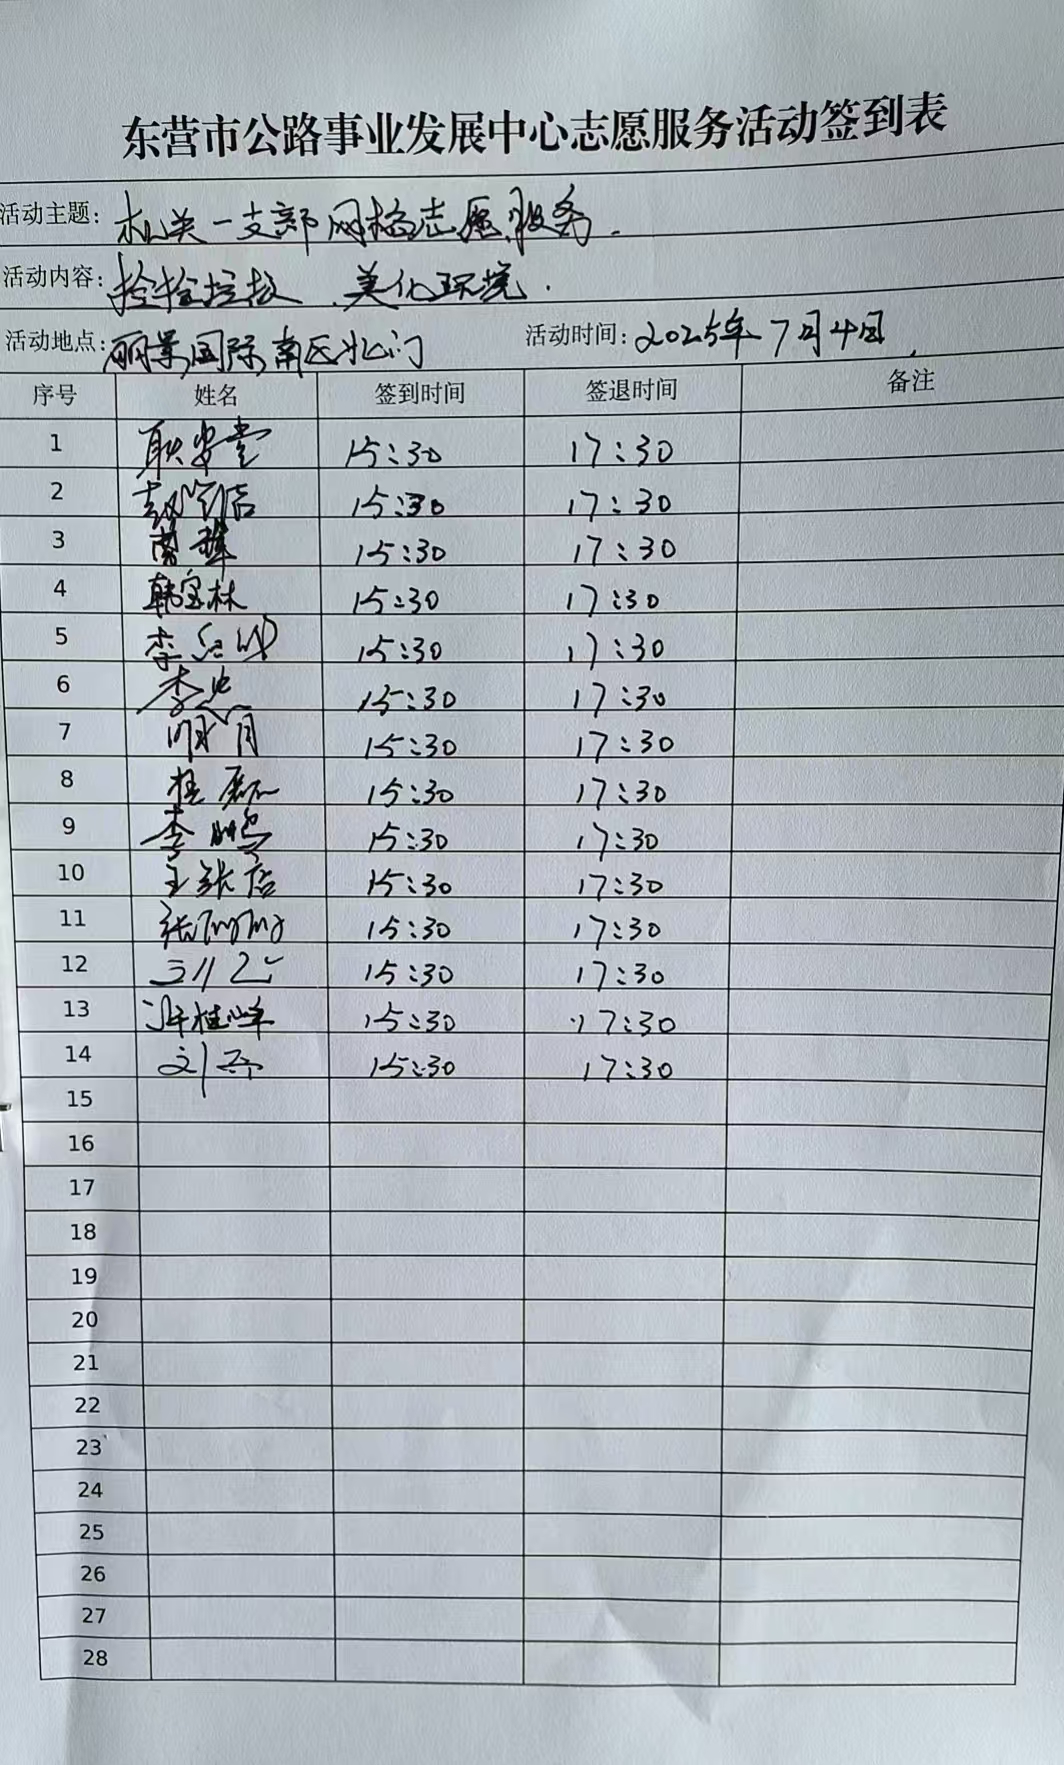 东营市公路事业发展中心志愿服务活动签到表
活动主题: 机关一支部网格志愿服务.
活动内容: 捡拾垃圾 、美化环境.
活动地点: 丽景国际南区北门 活动时间: 2025年7月4日
序号 姓名 签到时间 签退时间 备注
1 耿安堂 15:30 17:30
2 15:30 17:30
3 15:30 17:30
4 韩宝林 15:30 17:30
5 李 15:30 17:30
6 李忠 15:30 17:30
7 15:30 17:30
8 桂磊 15:30 17:30
9 李鹏 15:30 17:30
10 15:30 17:30
11 张 15:30 17:30
12 15:30 17:30
13 许桂峰 15:30 17:30
14 刘 15:30 17:30
15
16
17
18
19
20
21
22
23
24
25
26
27
28